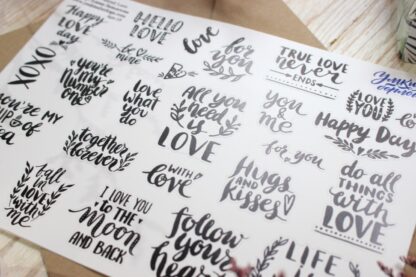 Happy
LOVE
day
HELLO
LOVE
love
for
you
TRUE LOVE
never
ENDS
I
LOVE
YOU
XOXO
be
mine
you're my
number
one
LOVE
what
you
do
All you
need
is
LOVE
you
&
me
Happy Day
YOU'RE MY
CUP OF
TEA
together
forever
with
love
for you
Hugs
AND
kisses
do all
THINGS
with
LOVE
fall
in
love
with
me
I LOVE YOU
to the
Moon
AND BACK
follow
your
heart
LIFE